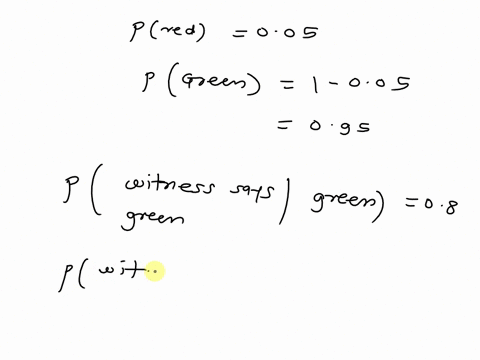 P(red) = 0.05
P(Green) = 1 - 0.05
= 0.95
P( witness says green | green) = 0.8
P( wit